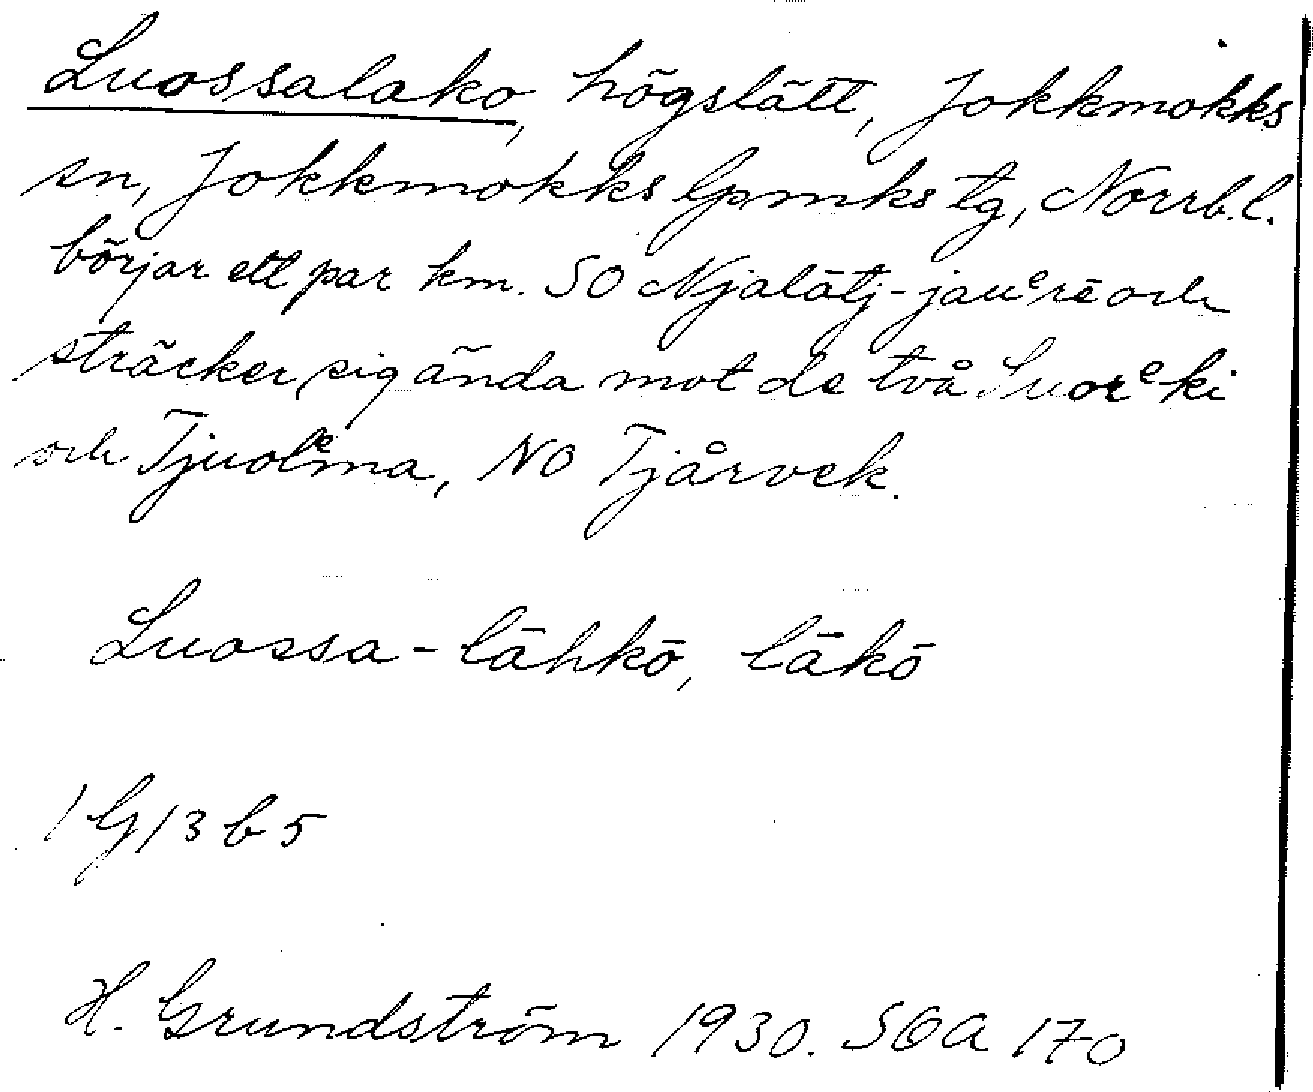 Luossalako, högslätt, Jokkmokks
sn, Jokkmokks lpmks tg, Norrb.l.
börjar ett par km. SO Njalätj-jauᵉrē och
sträcker sig ända mot de två Suorᵉki
och Tjuolᵉma, NO Tjårvek.
Luossa-lāhkō, lākō
1 G 13 b 5
H. Grundström 1930. SOA 170